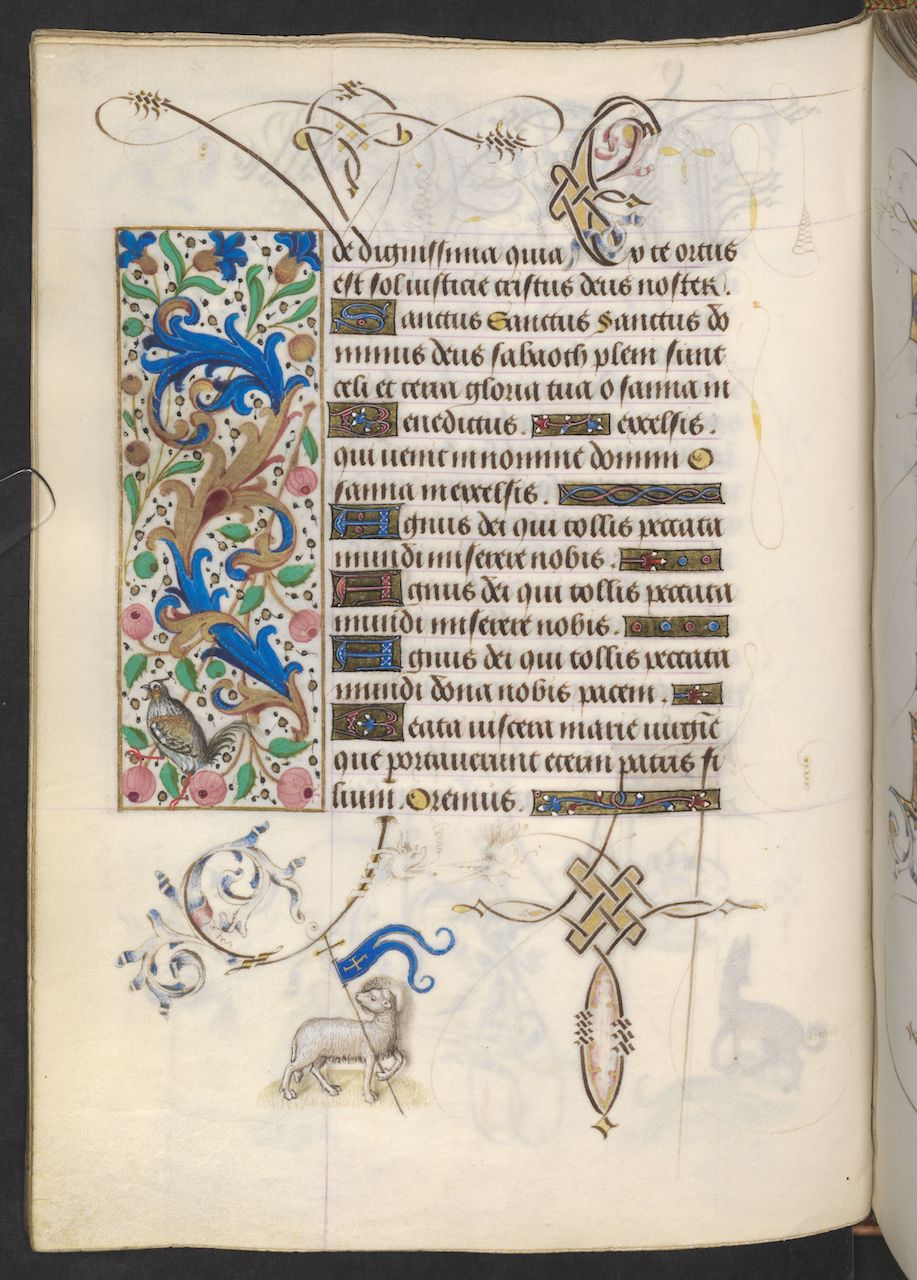 de dignissima quia Ex te ortus
est sol iusticie cristus deus noster.
Sanctus Sanctus Sanctus do
minus deus sabaoth pleni sunt
celi et terra gloria tua osanna in
Benedictus. excelsis.
qui uenit in nomine domini O
sanna in excelsis.
Agnus dei qui tollis peccata
mundi miserere nobis.
Agnus dei qui tollis peccata
mundi miserere nobis.
Agnus dei qui tollis peccata
mundi dona nobis pacem.
Beata uiscera marie uirginē
que portauerunt eterni patris fi
lium. Oremus.